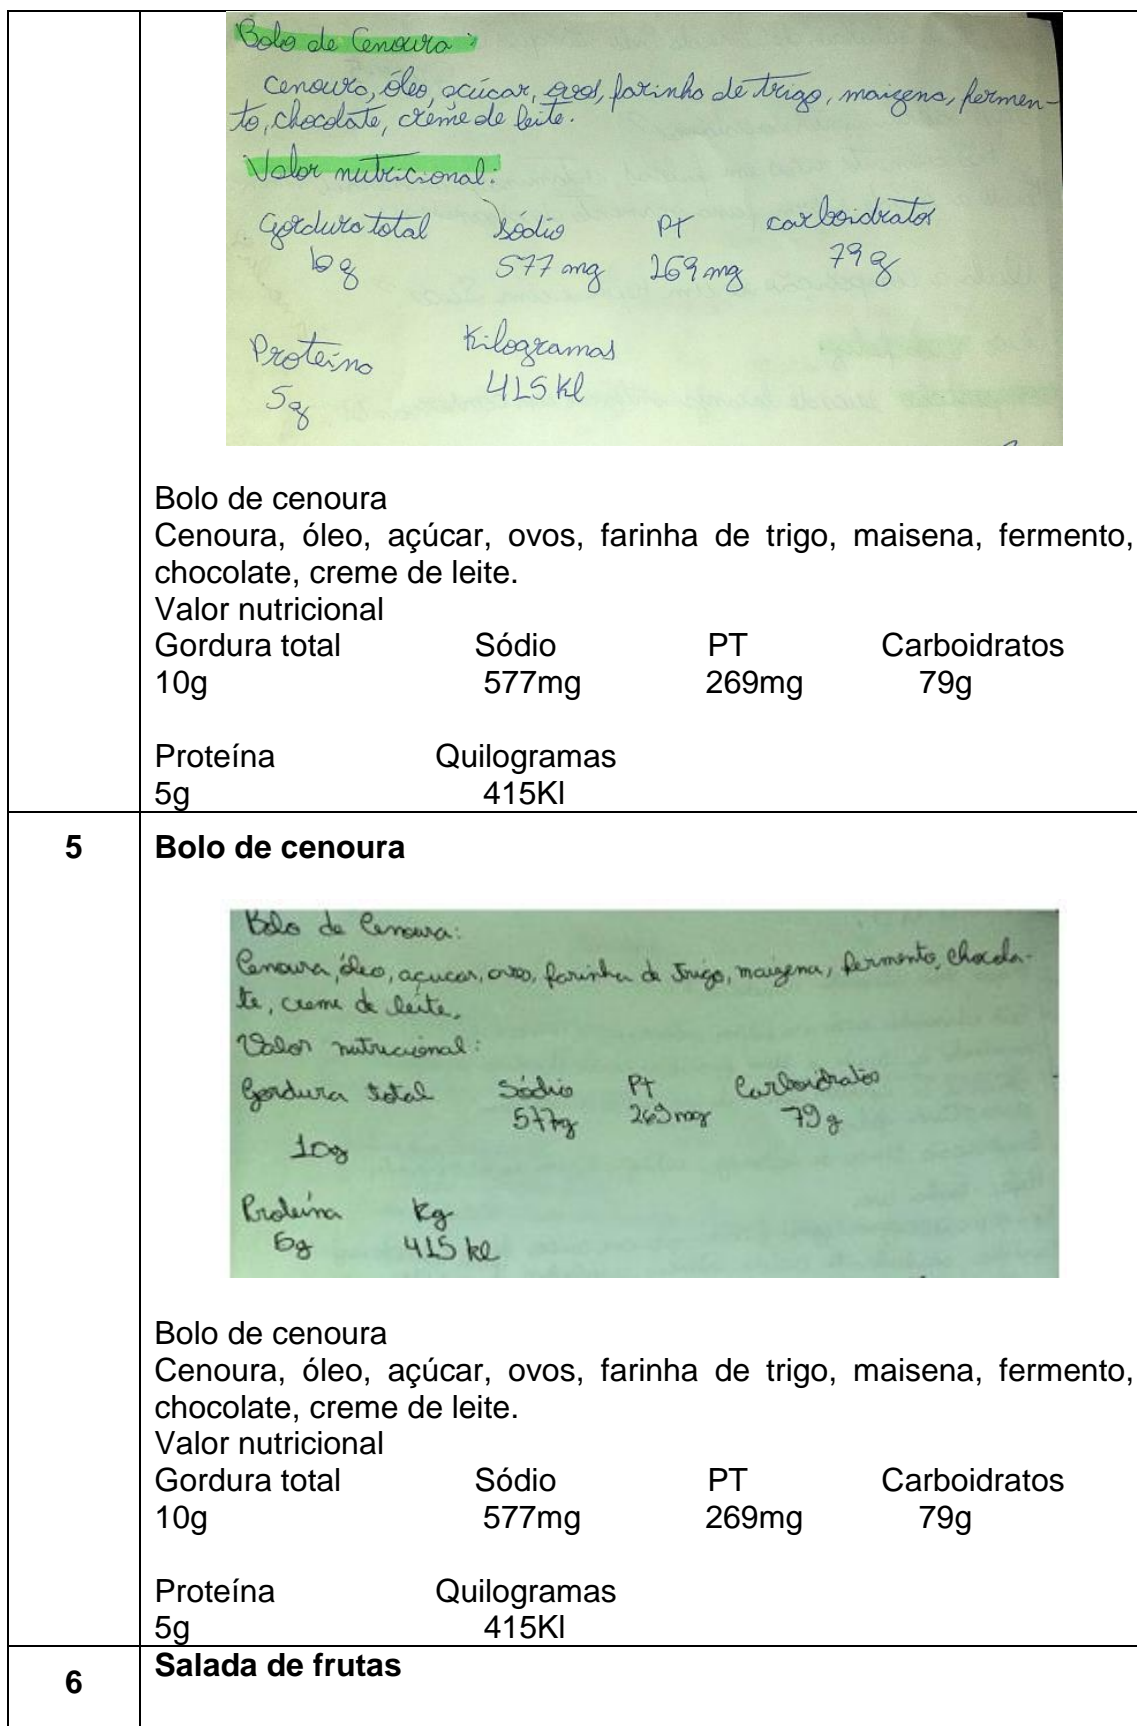 Bolo de Cenoura :
cenoura, óleo, açúcar, ovos, farinha de trigo, maizena, fermen-
to, chocolate, creme de leite.
Valor nutricional:
Gordura total sódio PT carboidratos
10g 577 mg 269 mg 79 g
Proteína Kilogramas
5g 415 Kl
Bolo de cenoura
Cenoura, óleo, açúcar, ovos, farinha de trigo, maisena, fermento,
chocolate, creme de leite.
Valor nutricional
Gordura total Sódio PT Carboidratos
10g 577mg 269mg 79g
Proteína Quilogramas
5g 415Kl
5 Bolo de cenoura
Bolo de Cenoura:
Cenoura, óleo, açucar, ovos, farinha de trigo, maizena, fermento, chocola-
te, creme de leite,
Valor nutricional:
Gordura total Sódio PT Carboidratos
577g 269 mg 79 g
10g
Proteína Kg
5g 415 kl
Bolo de cenoura
Cenoura, óleo, açúcar, ovos, farinha de trigo, maisena, fermento,
chocolate, creme de leite.
Valor nutricional
Gordura total Sódio PT Carboidratos
10g 577mg 269mg 79g
Proteína Quilogramas
5g 415Kl
6 Salada de frutas